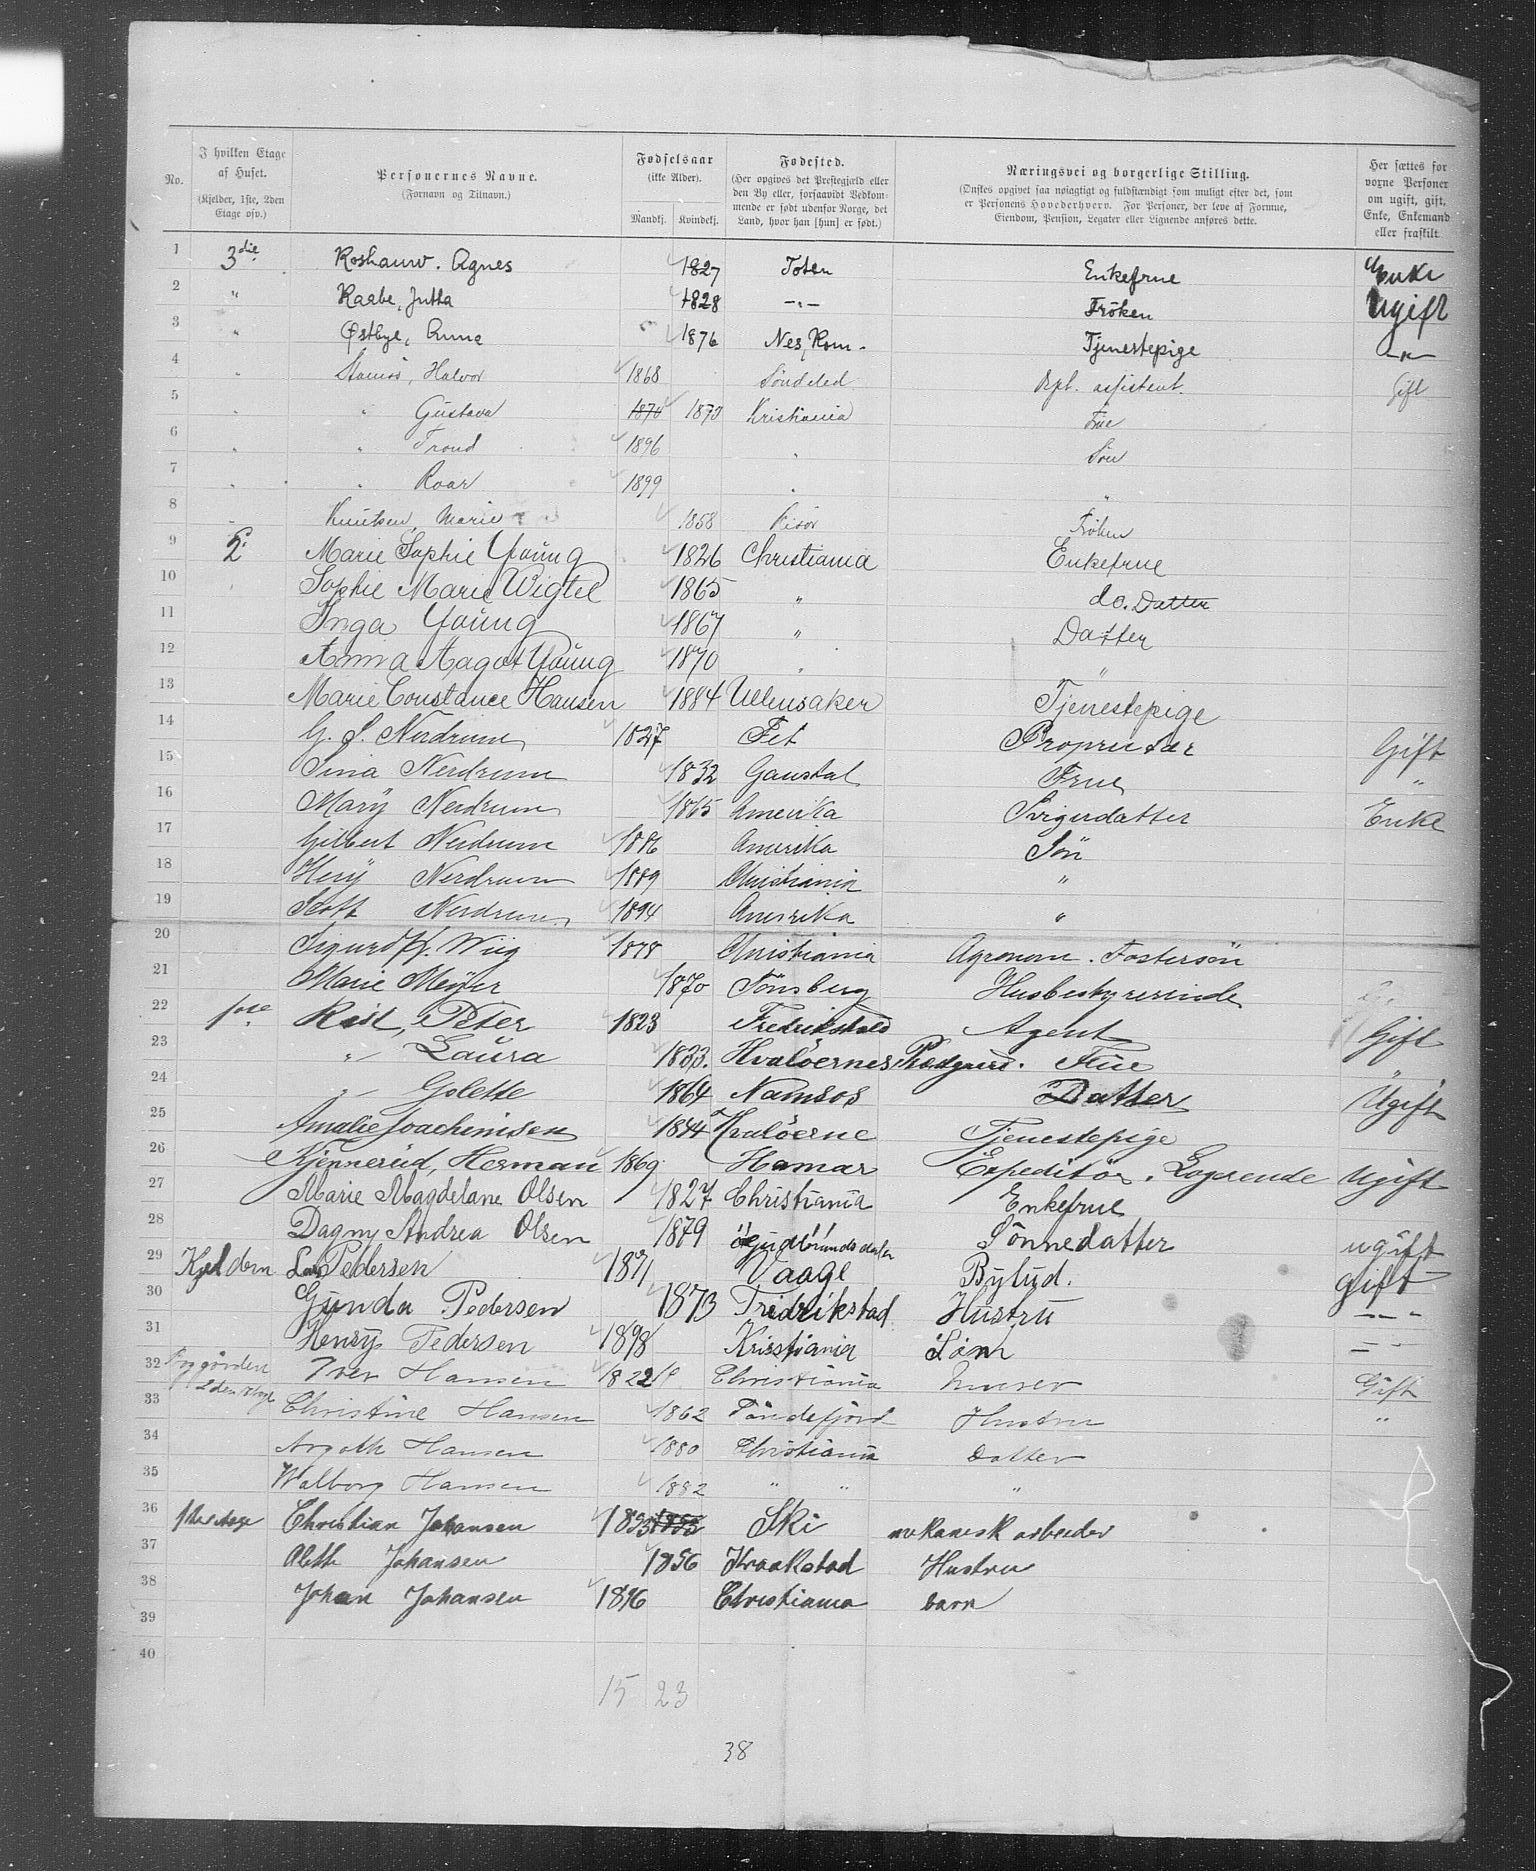 No.
I hvilken Etage af Huset. (Kjelder, 1ste, 2den Etage osv.)
Personernes Navne. (Fornavn og Tilnavn.)
Fødselsaar (ikke Alder). Mandkj. Kvindekj.
Fødested. (Her opgives det Prestegjæld eller den By eller, forsaavidt Vedkommende er født udenfor Norge, det Land, hvor han [hun] er født.)
Næringsvei og borgerlige Stilling. (Ønskes opgivet saa nøiagtigt og fuldstændigt som muligt efter det, som er Personens Hovederhverv. For Personer, der leve af Formue, Eiendom, Pension, Legater eller Lignende anføres dette.
Her sættes for voxne Personer om ugift, gift, Enke, Enkemand eller fraskilt
1 3die Roshauw. Agnes 1827 Toten Enkefrue Enke
2 " Raabe, Jutta 1828 -"- Frøken Ugift
3 " Østbye, Anna 1876 Nes, Rom. Tjenestepige -"-
4 " Halvor 1868 Søndeled assistent. Gift
5 " " Gustava 1870 1873 Kristiania Frue
6 " " Trond 1896 " Søn
7 " " Roar 1899 " "
8 " Knutsen, Marie 1858 Risør Frøken
9 2. Marie Sophie Young 1826 Christiania Enkefrue
10 Sophie Marie Wigtel 1865 " do. Datter
11 Inga Young 1867 " Datter
12 Anna Aagot Young 1870 " "
13 Marie Constance Hansen 1884 Ullensaker Tjenestepige
14 G. S. Nerdrum 1827 Fet Proprietær Gift
15 Sina Nerdrum 1832 Gausdal Frue "
16 Mary Nerdrum 1865 Amerika Svigerdatter Enke
17 Gilbert Nerdrum 1886 Amerika Søn
18 Nerdrum 1889 Christiania "
19 Scott Nerdrum 1894 Amerika "
20 Sigurd Wiig 1878 Christiania Agronom. Fostersøn
21 Marie Meyer 1870 Tønsberg Husbestyrerinde
22 1ste Peter 1823 Fredrikstad Agent Gift
23 " Laura 1833. Hvaløernes Frue "
24 " Golette 1864 Namsos Datter Ugift
25 Amalie Joachimsen 1844 Hvaløerne Tjenestepige
26 Kjennerud, Herman 1869 Hamar Expeditør. Logerende Ugift
27 Marie Magdelane Olsen 1827 Christiania Enkefrue
28 Dagny Andrea Olsen 1879 Sønnedatter ugift
29 Kjeldern Pedersen 1871 Vaage Bybud. gift
30 Gunda Pedersen 1873 Fridrikstad Hustru -"-
31 Henry Pedersen 1898 Kristiania Søn -"-
32 Iver Hansen 1822 Christiania murer Gift
33 2den Christine Hansen 1862 Sandefjord Hustru "
34 Hansen 1880 Christiania Datter
35 Walborg Hansen 1882 " " "
36 Christian Johansen 1853 1853 Ski mekanisk arbeider
37 Aleth Johansen 1856 Kraakstad Hustru
38 Johan Johansen 1896 Christiania barn
39
40
15 23
38